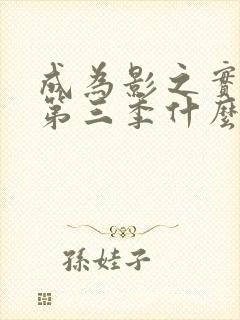 成為影之實
第三季什麼
孫娃子